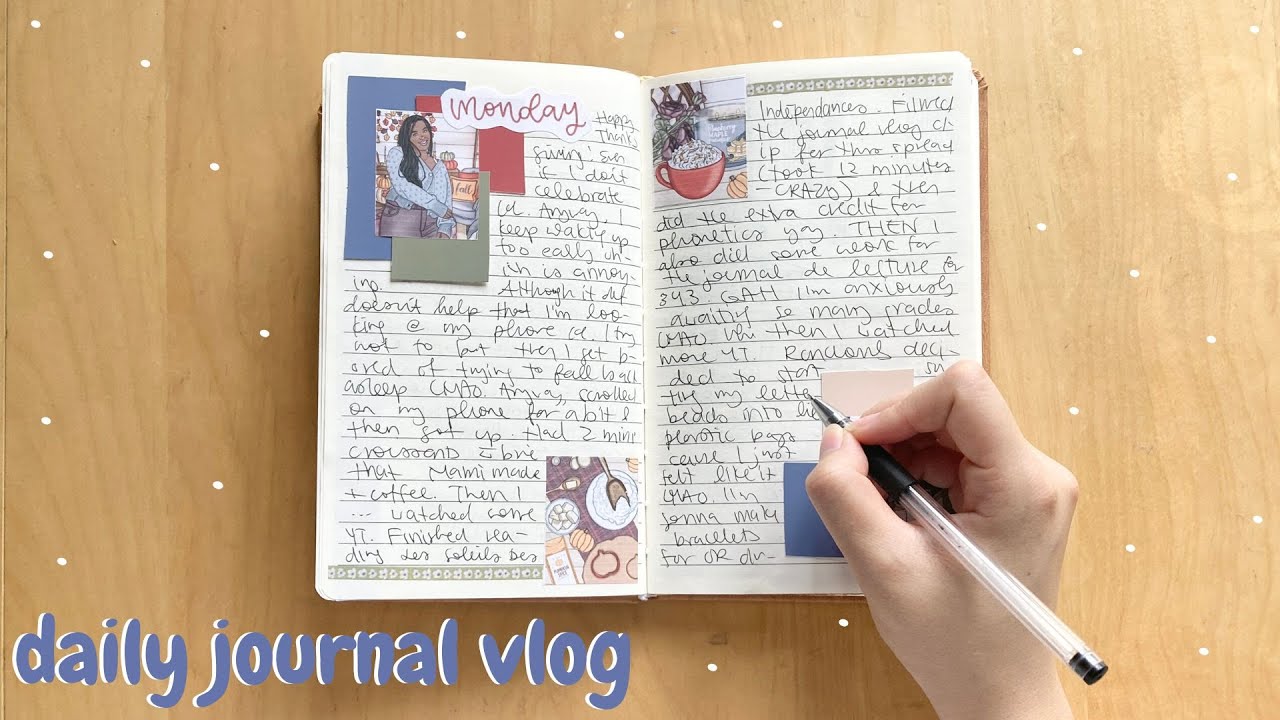 monday
Happy
Thanks
giving! Even
if I don't
celebrate
lol. Anyway, I
keep waking up
too early wh-
ich is annoy
ing. Although it def
doesn't help that I'm loo-
king @ my phone lol. I try
not to but then I get b-
ored of trying to fall back
asleep LMAO. Anyway, scrolled
on my phone for a bit &
then got up. Had 2 mini
croissants brie
that Mami made
+ coffee. Then I
... watched some
YT. Finished rea-
ding Les soleils des
fall
Indépendances. Filmed
the journal vlog cl-
ip for this spread
(took 12 minutes
- CRAZY) & then
did the extra credit for
phonetics yay. THEN I
also did some work for
the journal de lecture for
343. GAH I'm anxiously
awaiting so many grades
LMAO uhh then I watched
more YT. Randomly deci-
ded to start
my letter
beads into
plastic bags
cause I just
felt like it
LMAO. I'm
gonna make
bracelets
for OR du-
daily journal vlog